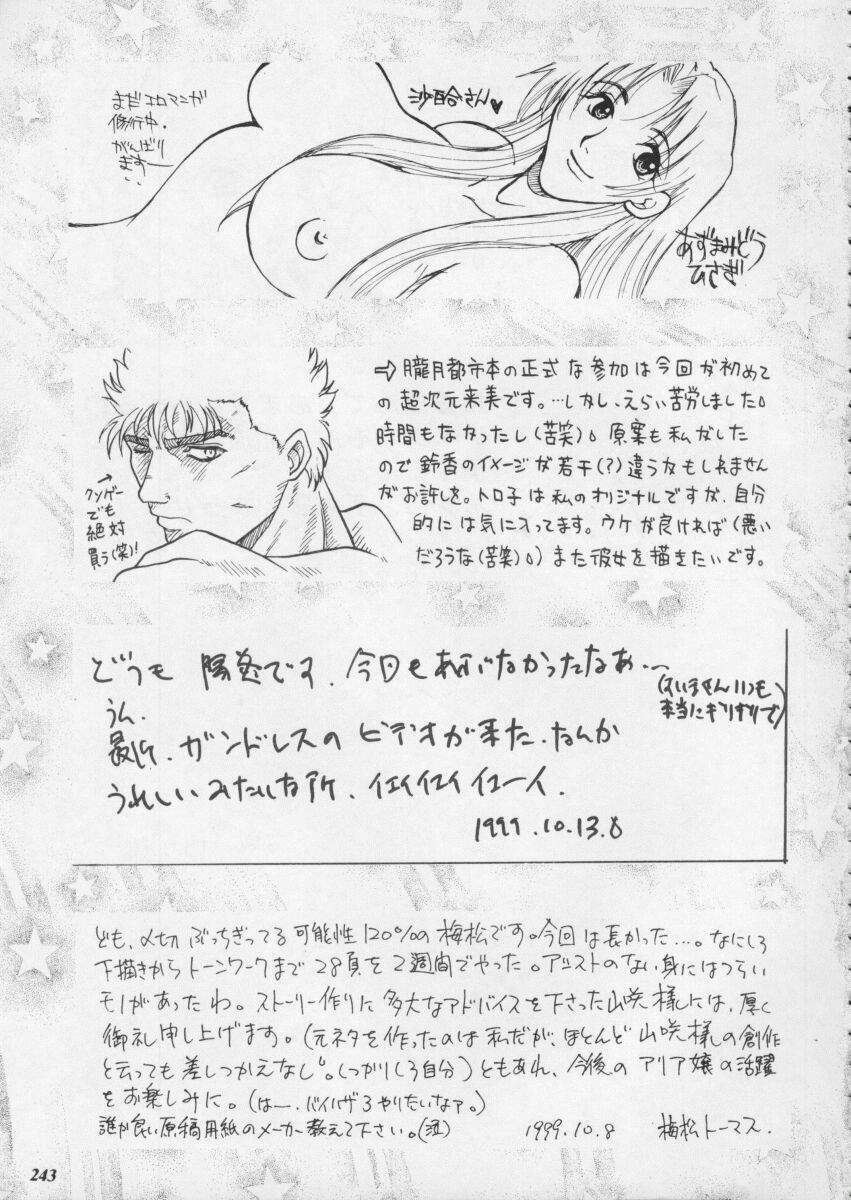 まだエロマンガ
修行中.
がんばり
ますー
沙百合さん♥
あずまみどう
ひさぎ
⇒朧月都市本の正式な参加は今回が初めて
の超次元来美です。…しかし、えらい苦労しました。
時間もなかったし(苦笑)。原案も私がした
ので鈴香のイメージが若干(?)違うかもしれません
がお許しを。トロ子は私のオリジナルですが、自分
的には気に入ってます。ウケが良ければ(悪い
だろうな(苦笑)。)また彼女を描きたいです。
クソゲー
でも
絶対
買う(笑)!
どうも 陽炎です. 今回もあぶなかったなぁ…
(すいませんいつも
本当にギリギリで)
うん.
最近. ガンドレスのビデオが来た. なんか
うれしいみたいな所. イエイイエイイエーイ.
1999.10.13.8
ども、〆切ぶっちぎってる可能性120%の梅松です。今回は長かった…。なにしろ
下描きからトーンワークまで28頁を2週間でやった。アシストのない身にはつらい
モノがあったわ。ストーリー作りに多大なアドバイスを下さった山咲様には、厚く
御礼申し上げます。(元ネタを作ったのは私だが、ほとんど山咲様の創作
と云っても差しつかえなし。しっかりしろ自分)ともあれ、今後のアリア嬢の活躍
をお楽しみに。(はー.バイハザ3やりたいなァ。)
誰か良い原稿用紙のメーカー教えて下さい。(泣) 1999.10.8 梅松トーマス.
243